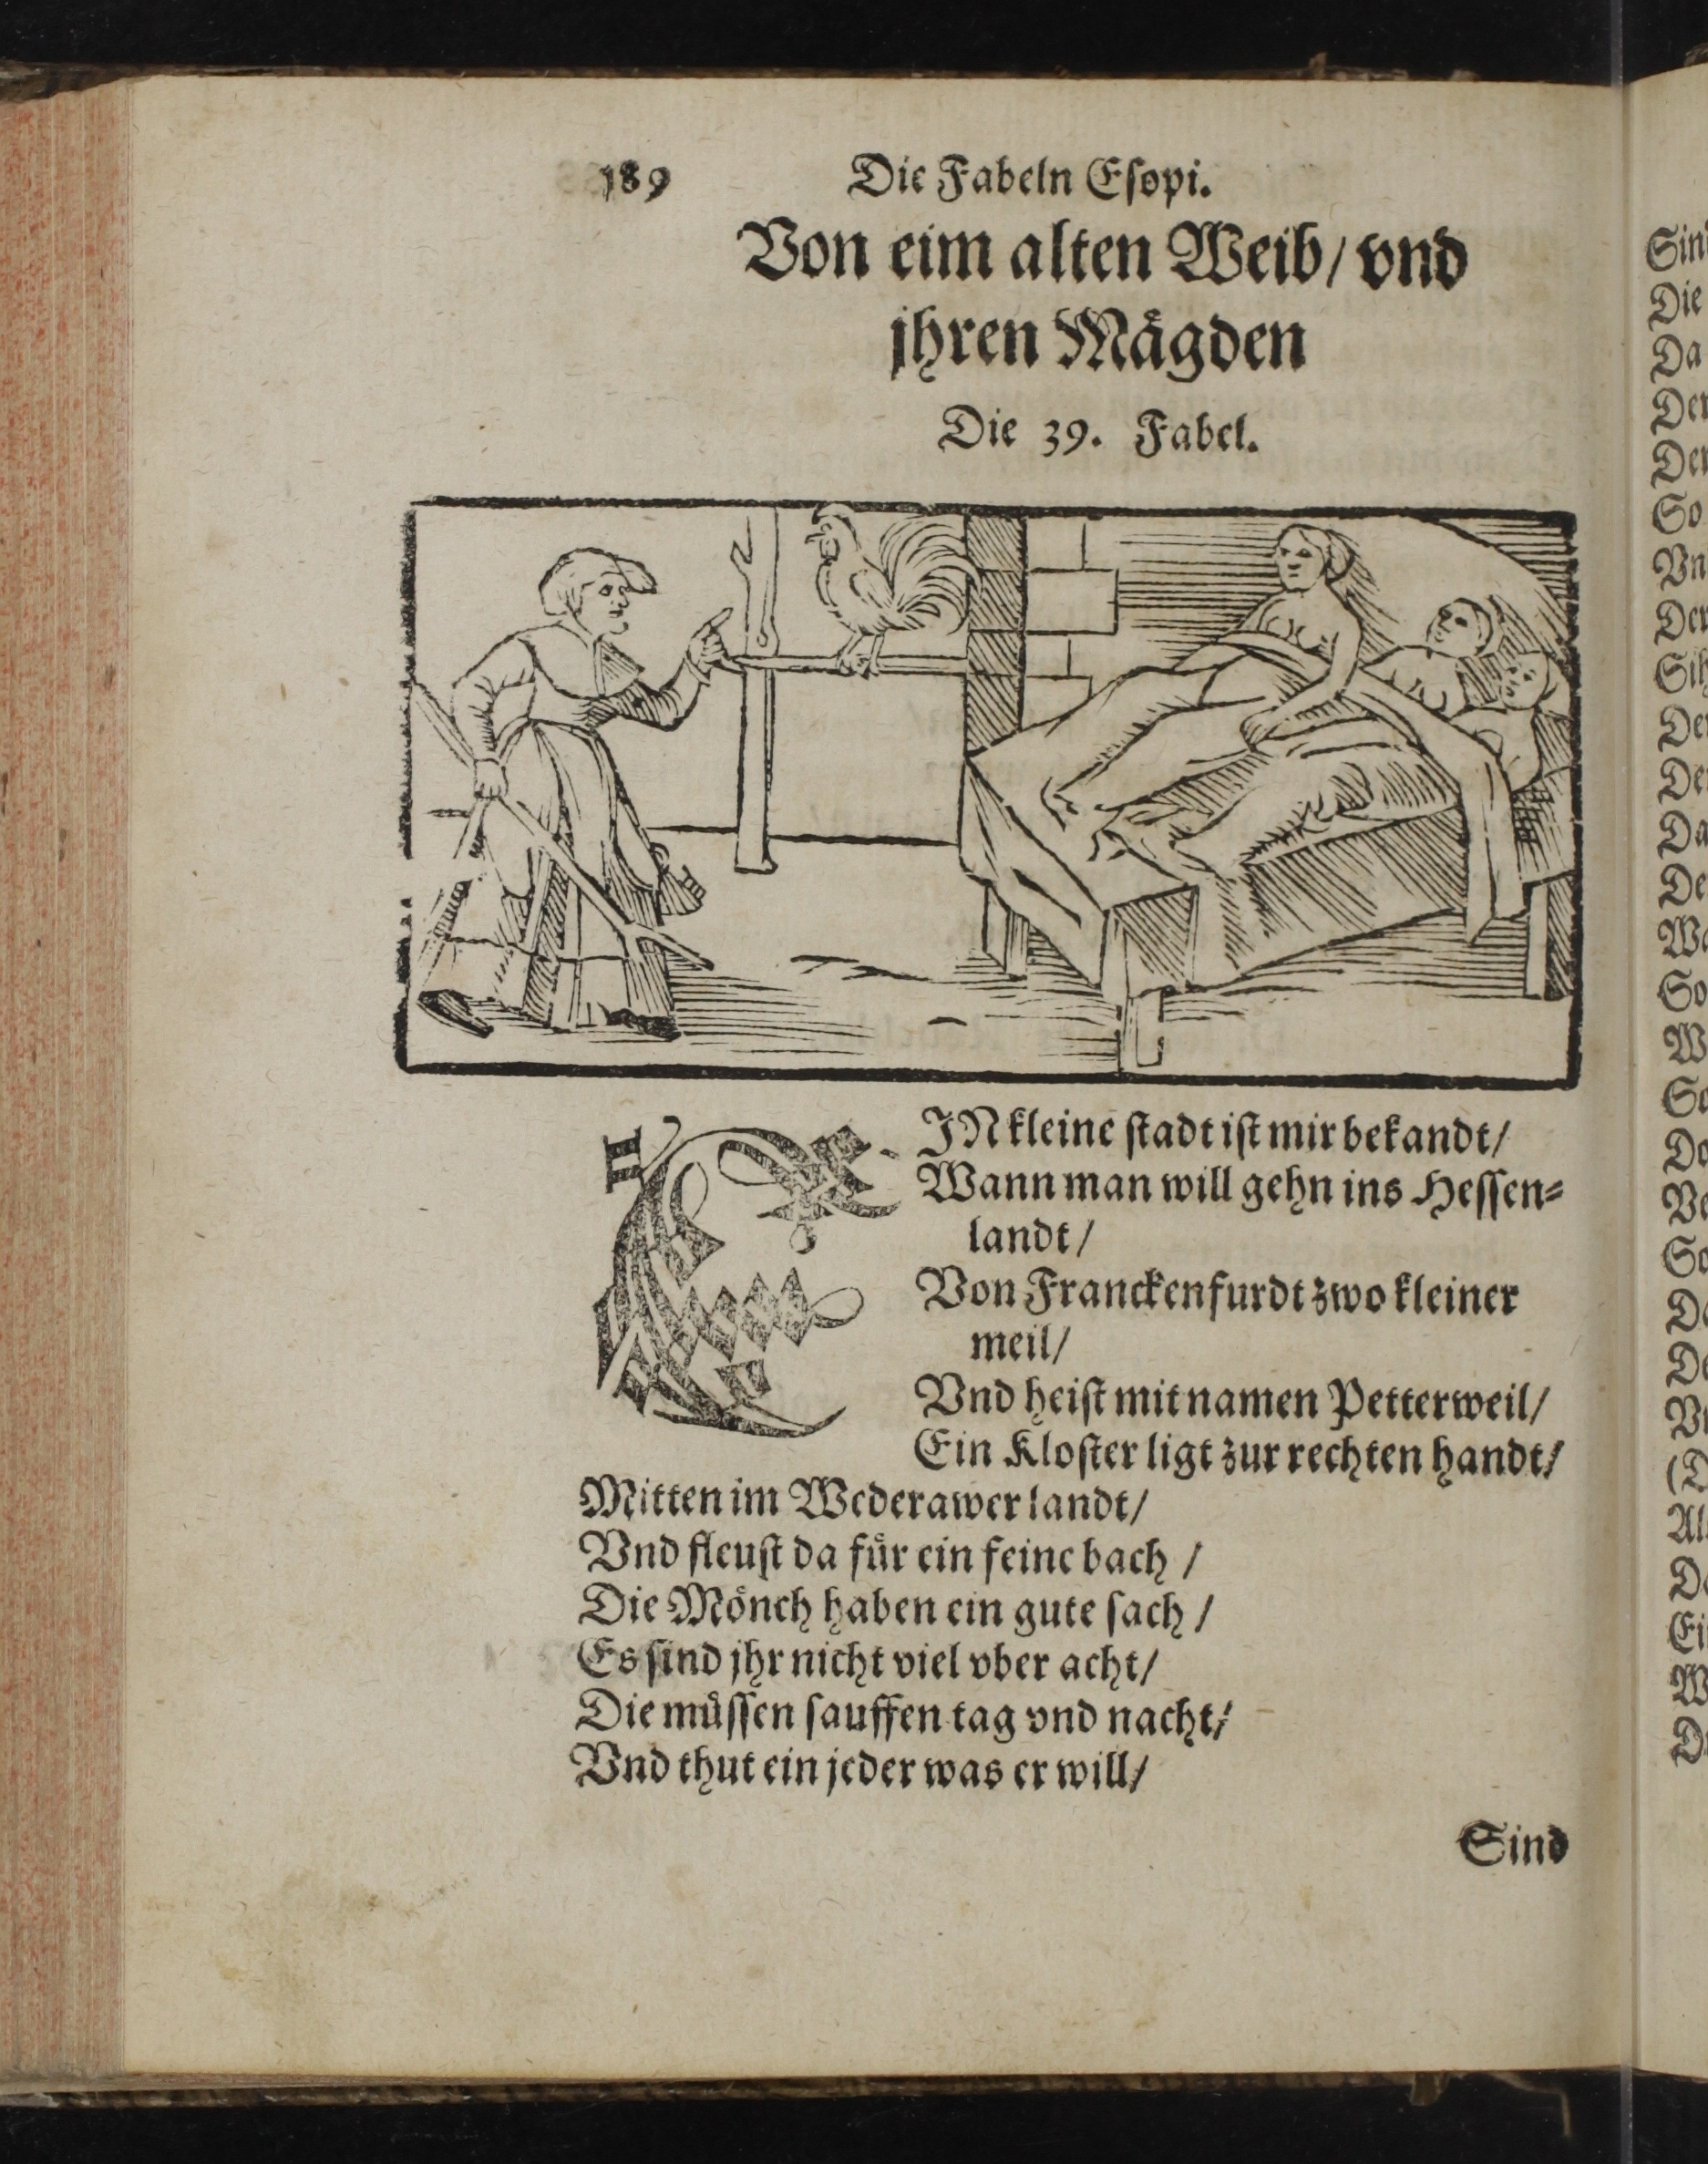 189 Die Fabeln Esopi.
Von eim alten Weib/ vnd
jhren Mägden
Die 39. Fabel.
EJN kleine stadt ist mir bekandt/
Wann man will gehn ins Hessen=
landt/
Von Franckenfurdt zwo kleiner
meil/
Vnd heist mit namen Petterweil/
Ein Kloster ligt zur rechten handt/
Mitten im Wederawer landt/
Vnd fleust da für ein feine bach /
Die Mönch haben ein gute sach /
Es sind jhr nicht viel vber acht/
Die müssen sauffen tag vnd nacht/
Vnd thut ein jeder was er will/
Sind
Die
Da
So